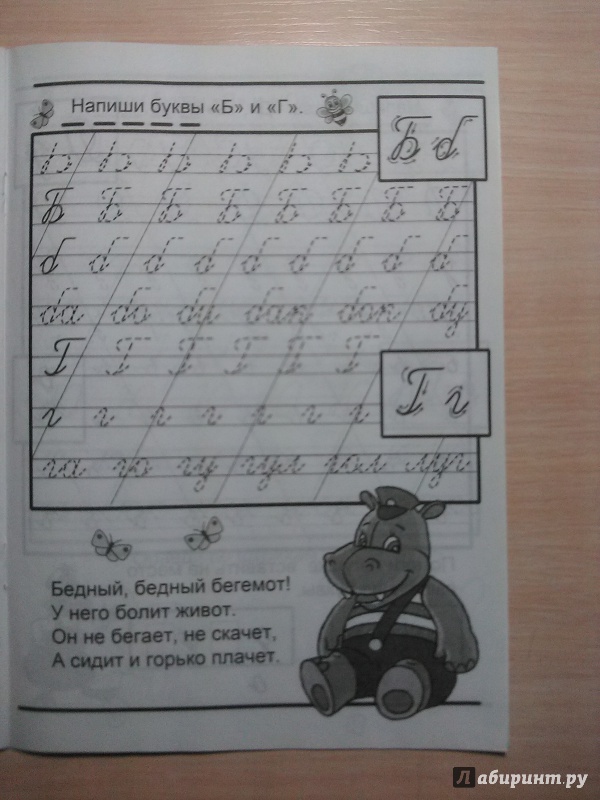 Напиши буквы «Б» и «Г».
Б б
Ь Ь Ь Ь Ь Ь
Б Б Б Б Б Б Б Б
б б б б б б б б б
ба бо бу бал бол бу
Г Г Г Г Г Г
Г г
г г г г г г г
га го гу гул гол луг
Бедный, бедный бегемот!
У него болит живот.
Он не бегает, не скачет,
А сидит и горько плачет.
Лабиринт.ру